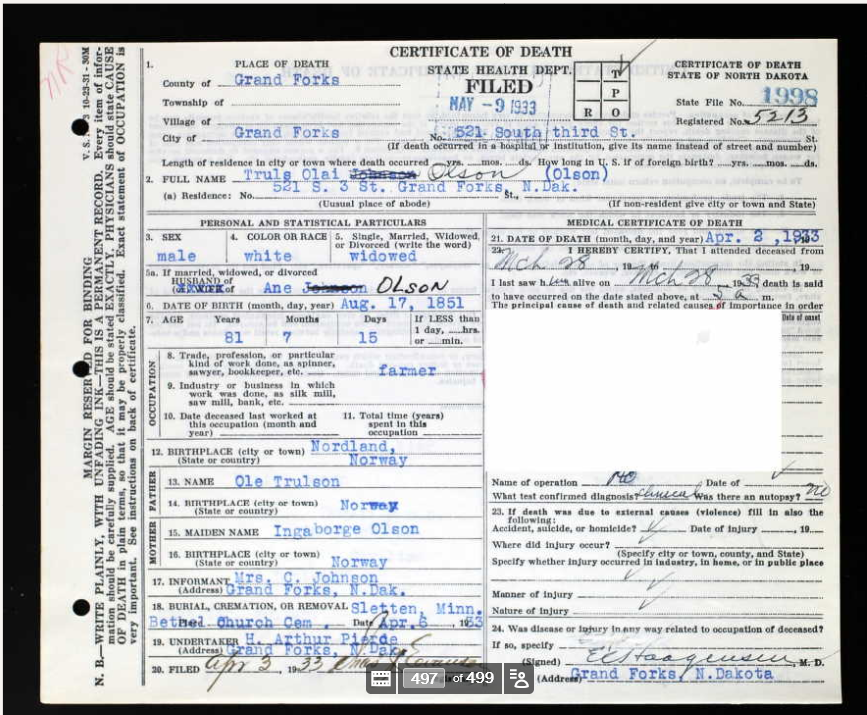 CERTIFICATE OF DEATH
1. PLACE OF DEATH
STATE HEALTH DEPT.
FILED
MAY -9 1933
T
P
R O
CERTIFICATE OF DEATH
STATE OF NORTH DAKOTA
County of Grand Forks
State File No. 1998
Township of
Registered No. 5213
Village of
City of Grand Forks No. 521 South third St. St.
(If death occurred in a hospital or institution, give its name instead of street and number)
Length of residence in city or town where death occurred yrs. mos. ds. How long in U. S. if of foreign birth? yrs. mos. ds.
2. FULL NAME Truls Olai Johnson Olson (Olson)
(a) Residence: No. 521 S. 3 St. Grand Forks, N.Dak. St.,
(Usual place of abode) (If non-resident give city or town and State)
PERSONAL AND STATISTICAL PARTICULARS
3. SEX
male
4. COLOR OR RACE
white
5. Single, Married, Widowed, or Divorced (write the word)
widowed
5a. If married, widowed, or divorced
HUSBAND of
Ane Johnson OLSON
6. DATE OF BIRTH (month, day, year) Aug. 17, 1851
7. AGE Years Months Days If LESS than
1 day, hrs.
or min.
81 7 15
OCCUPATION
8. Trade, profession, or particular
kind of work done, as spinner,
sawyer, bookkeeper, etc. farmer
9. Industry or business in which
work was done, as silk mill,
saw mill, bank, etc.
10. Date deceased last worked at
this occupation (month and
year)
11. Total time (years)
spent in this
occupation
12. BIRTHPLACE (city or town) Nordland,
(State or country) Norway
FATHER
13. NAME Ole Trulson
14. BIRTHPLACE (city or town)
(State or country) Norway
MOTHER
15. MAIDEN NAME Ingaborge Olson
16. BIRTHPLACE (city or town)
(State or country) Norway
17. INFORMANT Mrs. C. Johnson
(Address) Grand Forks, N.Dak.
18. BURIAL, CREMATION, OR REMOVAL Sletten, Minn.
Place Bethel Church Cem. Date Apr. 1933
19. UNDERTAKER H. Arthur Pierce
(Address) Grand Forks, N.Dak
20. FILED Apr 3, 1933
MEDICAL CERTIFICATE OF DEATH
21. DATE OF DEATH (month, day, and year) Apr. 2, 1933
22. I HEREBY CERTIFY, That I attended deceased from
Mch 28, 19 to Mch 28, 19
I last saw him alive on Mch 28, 1933 death is said
to have occurred on the date stated above, at 5 a m.
The principal cause of death and related causes of importance in order
Date of onset
Name of operation no Date of
What test confirmed diagnosis? clinical Was there an autopsy? no
23. If death was due to external causes (violence) fill in also the
following:
Accident, suicide, or homicide? Date of injury , 19
Where did injury occur?
(Specify city or town, county, and State)
Specify whether injury occurred in industry, in home, or in public place
Manner of injury
Nature of injury
24. Was disease or injury in any way related to occupation of deceased?
If so, specify
(Signed) M. D.
(Address) Grand Forks, N.Dakota
V. S. 10-23-31-30M
MARGIN RESERVED FOR BINDING
N. B.—WRITE PLAINLY, WITH UNFADING INK—THIS IS A PERMANENT RECORD. Every item of information should be carefully supplied. AGE should be stated EXACTLY. PHYSICIANS should state CAUSE OF DEATH in plain terms, so that it may be properly classified. Exact statement of OCCUPATION is very important. See instructions on back of certificate.
497 of 499